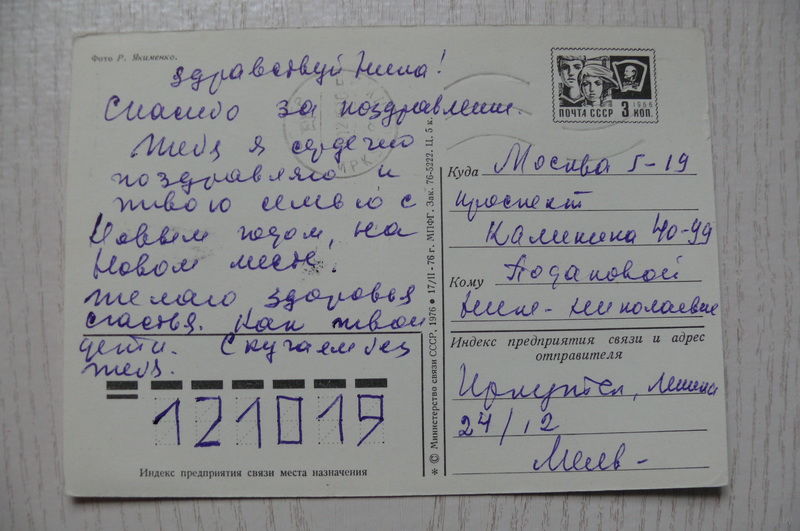 Фото Р. Якименко.
здравствуй Нина!
Спасибо за поздравления.
Тебя я сердечно
поздравляю и
твою семью с
Новым годом, на
новом месте.
желаю здоровья
счастья. Как твои
дети. Скучаем без
тебя.
121019
Индекс предприятия связи места назначения
* © Министерство связи СССР, 1976 • 17/II-76 г. МПФГ. Зак. 76-5222. Ц. 5 к.
1966
ПОЧТА СССР 3 КОП.
Куда Москва Г-19
проспект
Калинина 40-99
Кому
Нине Николаевне
Индекс предприятия связи и адрес
отправителя
Иркутск, Ленина
24/12